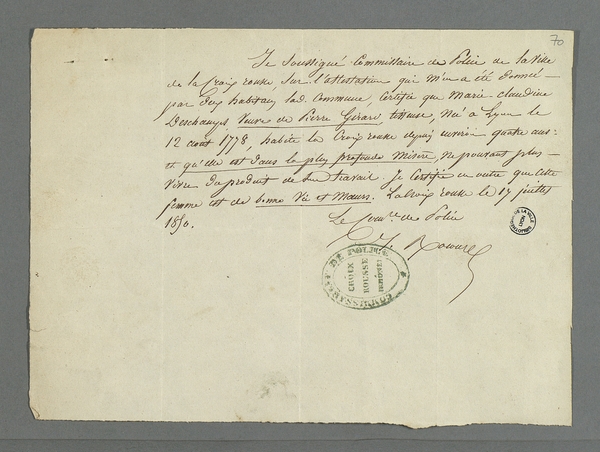 70
Je soussigné Commissaire de Police de la Ville
de la Croix rousse, sur l'attestation qui m'en a été donnée
par deux habitans lad. Commune, Certifie que Marie-Claudine
Deschamps, Veuve de Pierre Girard tisseuse, née à Lyon le
12 aout 1778, habite la Croix rousse depuis environ quatre ans
et qu'elle est dans la plus profonde Misère, ne pouvant plus
Vivre du produit de son travail. Je Certifie en outre que cette
femme est de bonne Vie et Mœurs. La Croix rousse le 17 juillet
1850.
Le Comre. de Police
COMMISSARIAT DE POLICE
CROIX
ROUSSE